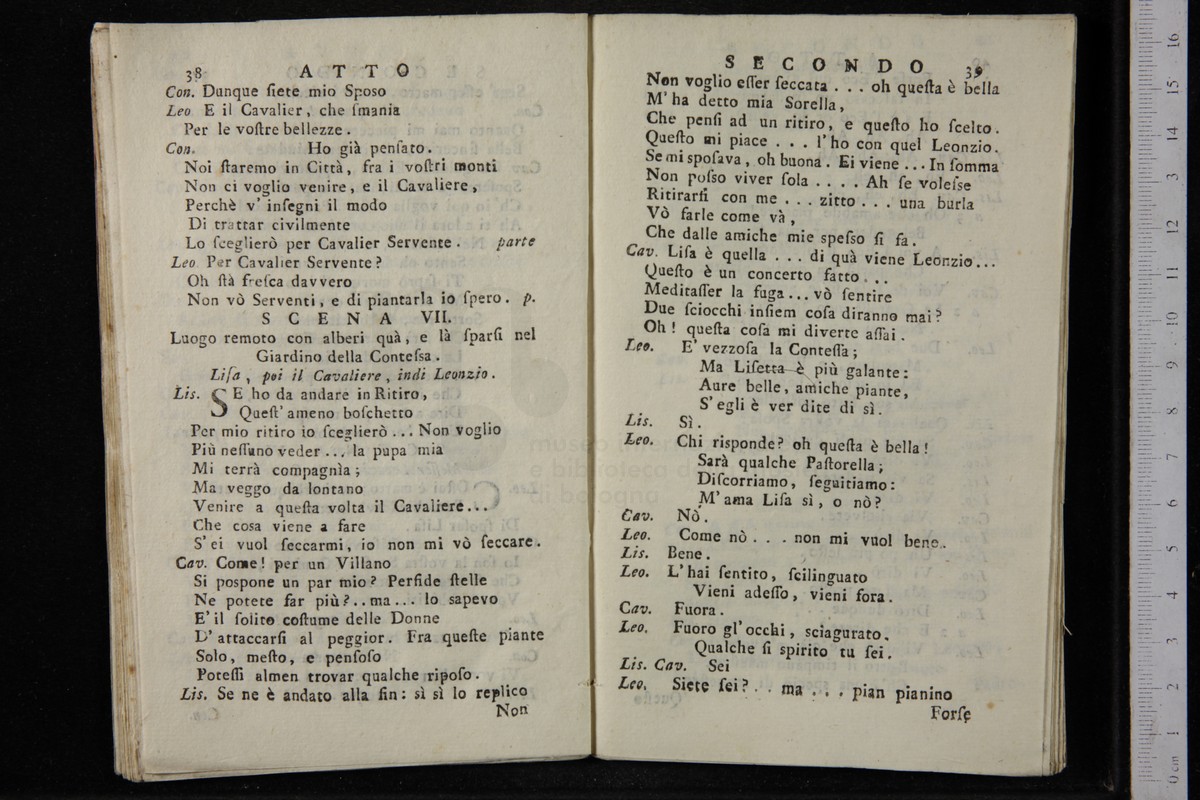 38 ATTO
Con. Dunque ſiete mio Sposo
Leo E il Cavalier, che ſmania
Per le voſtre bellezze.
Con. Ho già penſato.
Noi ſtaremo in Città, fra i voſtri monti
Non ci voglio venire, e il Cavaliere,
Perchè v' inſegni il modo
Di trattar civilmente
Lo ſceglierò per Cavalier Servente. parte
Leo Per Cavalier Servente?
Oh ſtà freſca davvero
Non vò Serventi, e di piantarla io ſpero. p.
SCENA VII.
Luogo remoto con alberi quà, e là ſparſi nel
Giardino della Conteſsa.
Liſa, poi il Cavaliere, indi Leonzio.
Lis. SE ho da andare in Ritiro,
Queſt' ameno boſchetto
Per mio ritiro io ſceglierò... Non voglio
Più neſſuno veder... la pupa mia
Mi terrà compagnìa;
Ma veggo da lontano
Venire a queſta volta il Cavaliere...
Che cosa viene a fare
S' ei vuol ſeccarmi, io non mi vò ſeccare.
Cav. Come! per un Villano
Si pospone un par mio? Perfide ſtelle
Ne potete far più?..ma... lo sapevo
E' il ſolito coſtume delle Donne
D' attaccarſi al peggior. Fra queſte piante
Solo, meſto, e penſoſo
Poteſſi almen trovar qualche ripoſo.
Lis. Se ne è andato alla fin: sì sì lo replico
Non
SECONDO 39
Non voglio eſſer ſeccata... oh queſta è bella
M' ha detto mia Sorella,
Che penſi ad un ritiro, e queſto ho ſcelto.
Queſto mi piace... l' ho con quel Leonzio.
Se mi spoſava, oh buona. Ei viene... In ſomma
Non poſso viver ſola.... Ah ſe voleſse
Ritirarſi con me... zitto... una burla
Vò farle come và,
Che dalle amiche mie speſso ſi fa.
Cav. Liſa è quella... di quà viene Leonzio...
Queſto è un concerto fatto...
Meditaſſer la fuga... vò ſentire
Due ſciocchi inſiem coſa diranno mai?
Oh! queſta coſa mi diverte aſſai.
Leo. E' vezzoſa la Conteſſa;
Ma Liſetta è più galante:
Aure belle, amiche piante,
S' egli è ver dite di sì.
Lis. Sì.
Leo. Chi risponde? oh queſta è bella!
Sarà qualche Paſtorella;
Diſcorriamo, ſeguitiamo:
M' ama Liſa sì, o nò?
Cav. Nò.
Leo. Come nò... non mi vuol bene.
Lis. Bene.
Leo. L' hai ſentito, ſcilinguato
Vieni adeſſo, vieni fora.
Cav. Fuora.
Leo. Fuoro gl' occhi, sciagurato.
Qualche ſi spirito tu ſei.
Lis. Cav. Sei
Leo. Siete ſei?.. ma... pian pianino
Forſe